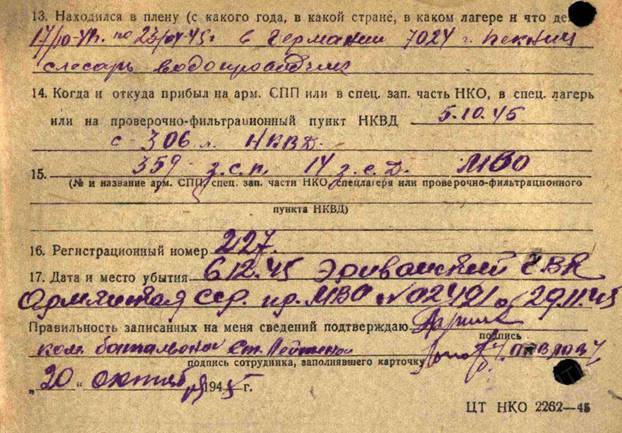 13. Находился в плену (с какого года, в какой стране, в каком лагере и что де
по 23/04-45 г. в Германии 7024 г.
слесарь водопроводчик
14. Когда и откуда прибыл на арм. СПП или в спец. зап. часть НКО, в спец. лагерь
или на проверочно-фильтрационный пункт НКВД 5.10.45
с-306 л. НКВД.
15. 359 з.с.п. 14 з.с.д. МВО
(№ и название арм. СПП, спец. зап. части НКО, спецлагеря или проверочно-фильтрационного
пункта НКВД)
16. Регистрационный номер 227.
17. Дата и место убытия 6.12.45 Эриванский ГВК
Армянская ССР. пр. МВО №02491 от 29.11.45
Правильность записанных на меня сведений подтверждаю
подпись
ком. баттальона Ст. Лейтенант /ПАВЛОВ/
подпись сотрудника, заполнявшего карточку
„20" октября 1945 г.
ЦТ НКО 2262—45